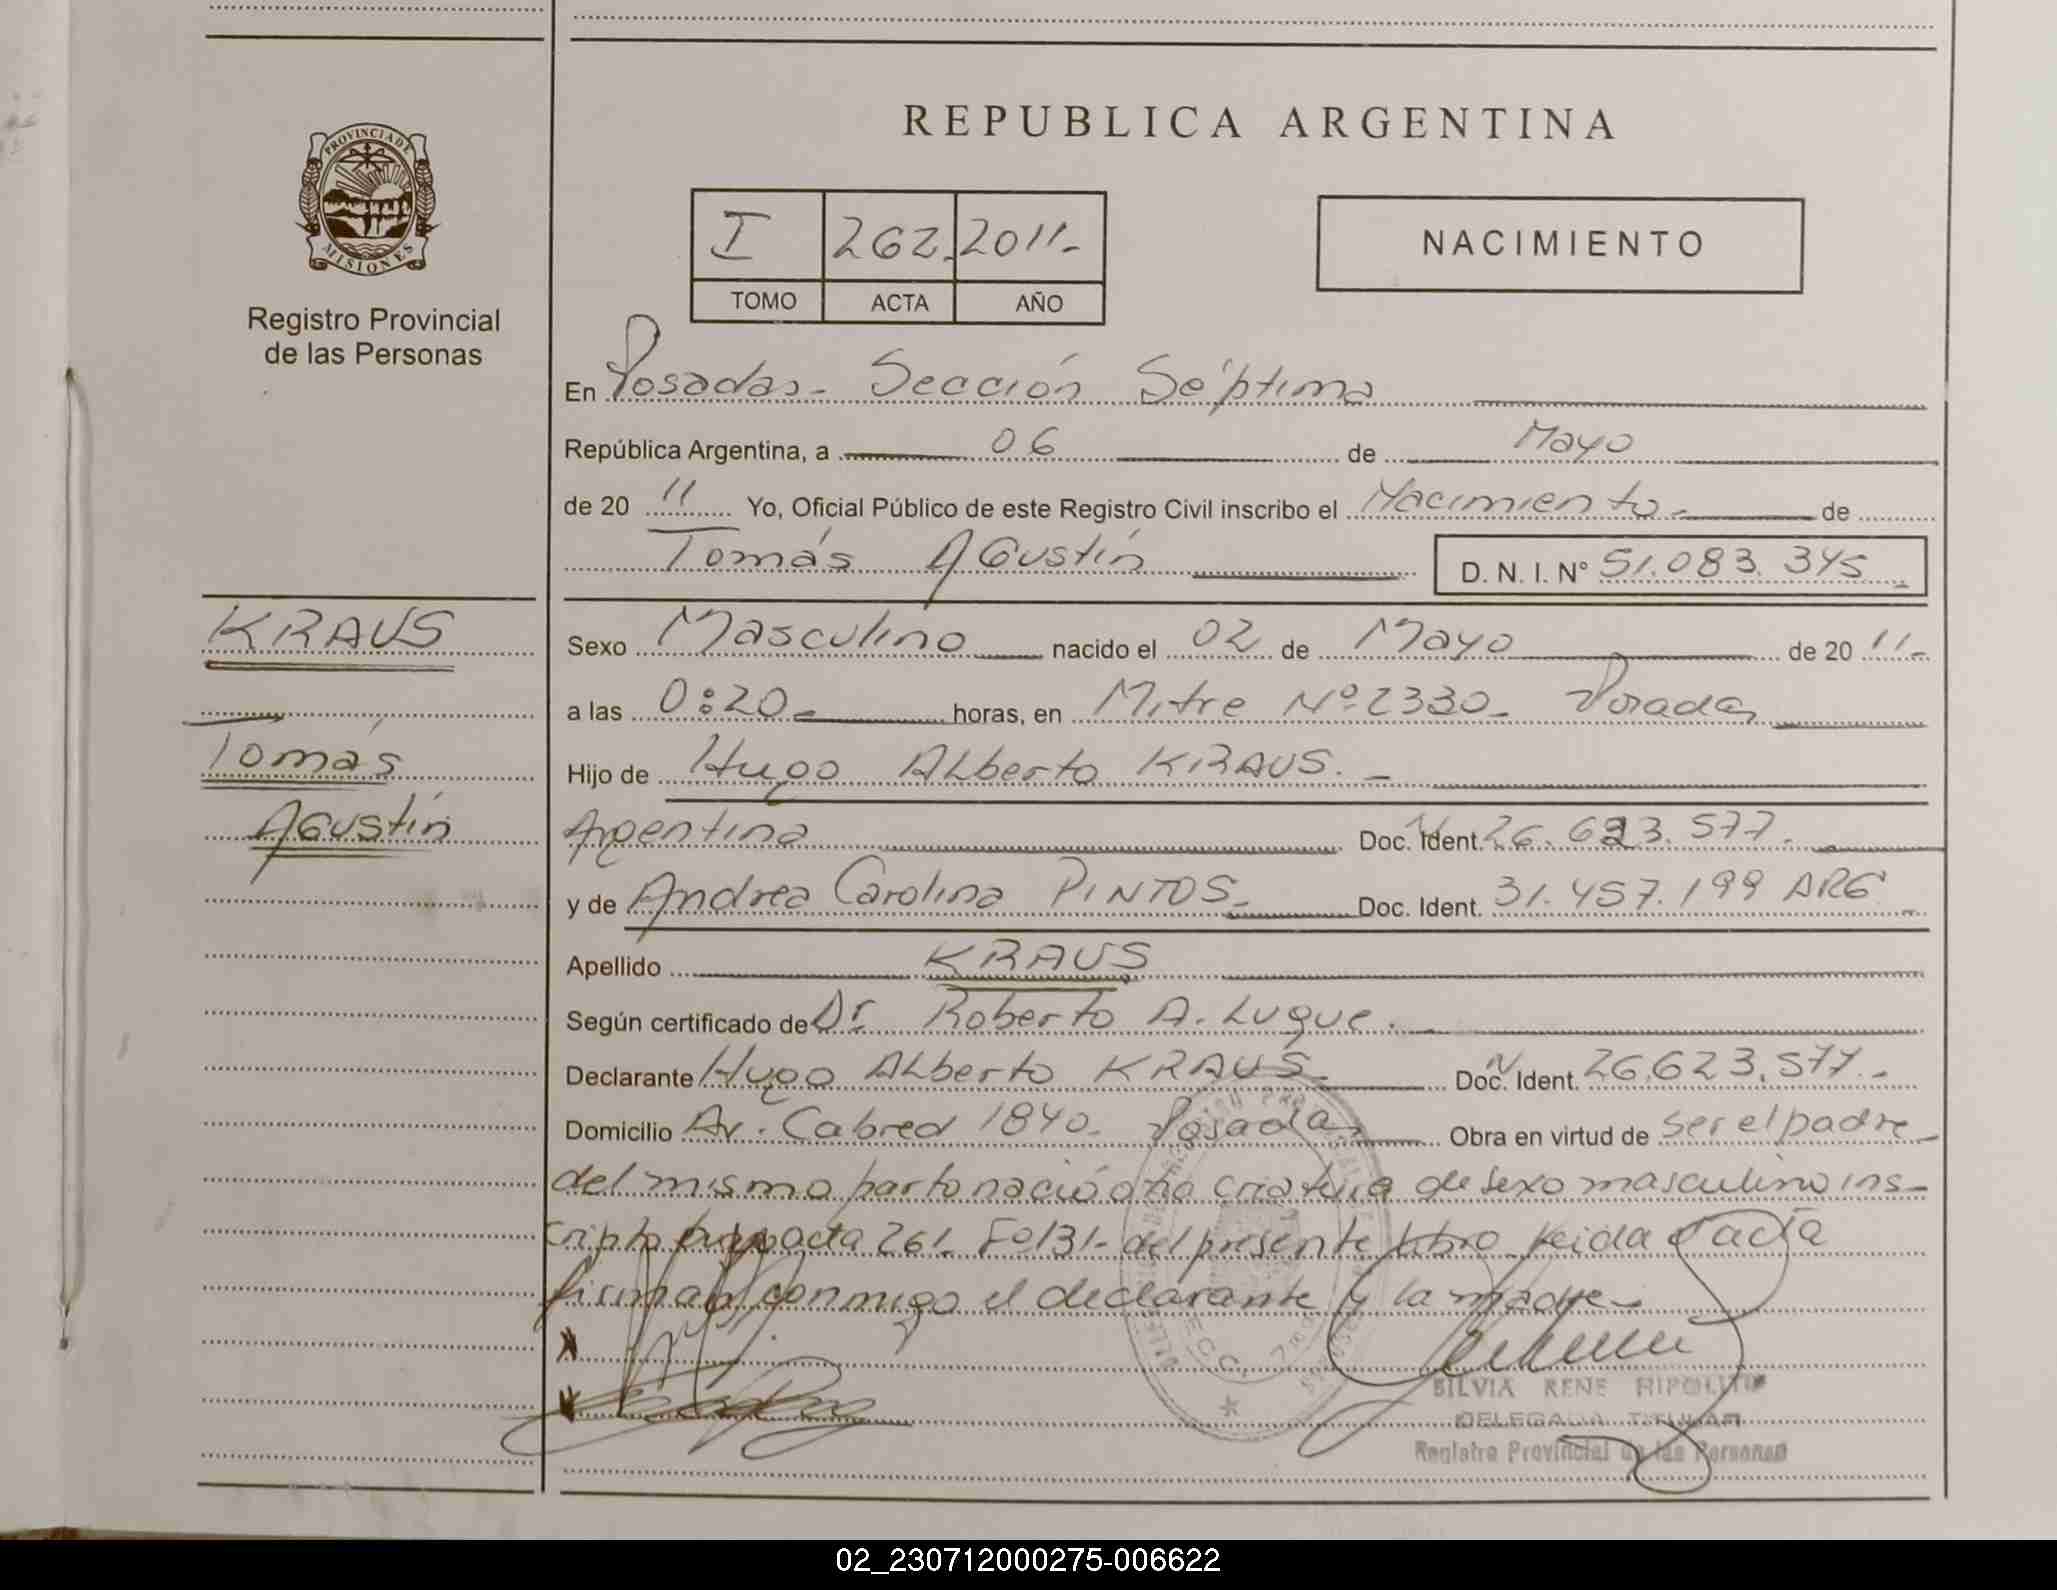 REPUBLICA ARGENTINA
PROVINCIA DE
MISIONES
Registro Provincial
de las Personas
I 262. 2011-
TOMO ACTA AÑO
NACIMIENTO
En Posadas- Sección Séptima
República Argentina, a 06 de Mayo
de 20 11 Yo, Oficial Público de este Registro Civil inscribo el Nacimiento- de
Tomás Agustín D. N. I. N° 51.083.345
KRAUS
Tomás
Agustín
Sexo Masculino nacido el 02 de Mayo de 20 11-
a las 0:20- horas, en Mitre Nº 2330- Posadas
Hijo de Hugo Alberto KRAUS. -
Argentina Doc. Ident. 26.623.577.
y de Andrea Carolina PINTOS- Doc. Ident. 31.457.199 ARG
Apellido KRAUS
Según certificado de Dr. Roberto A. Luque.
Declarante Hugo Alberto KRAUS- Doc. Ident. 26.623.577.-
Domicilio Av. Cabred 1840- Posadas Obra en virtud de ser el padre
del mismo parto nació otra criatura de sexo masculino ins-
cripto acta 261- Fº131- del presente libro Leida el acta
firman conmigo el declarante y la madre-
SILVIA RENE HIPOLITO
DELEGADA TITULAR
Registro Provincial de las Personas
02_230712000275-006622